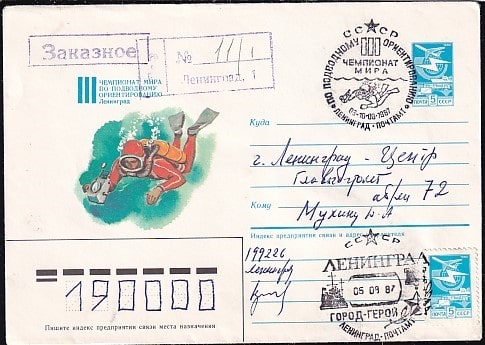 Заказное
№ 11/1
Ленинград, 1
III ЧЕМПИОНАТ МИРА
ПО ПОДВОДНОМУ
ОРИЕНТИРОВАНИЮ
Ленинград
СССР
ПО ПОДВОДНОМУ ОРИЕНТИРОВАНИЮ
III
ЧЕМПИОНАТ
МИРА
ЛЕНИНГРАД-ПОЧТАМТ
ПОЧТА 5К СССР
Куда
г. Ленинград - Центр
Главпочтамт
аб/ящ 72
Кому
Мухину
Индекс предприятия связи и адрес отправителя
199226
Ленинград
СССР
ЛЕНИНГРАД
05 09 87
ГОРОД-ГЕРОЙ
ЛЕНИНГРАД-ПОЧТАМТ
ПОЧТА 5К СССР
190000
Пишите индекс предприятия связи места назначения